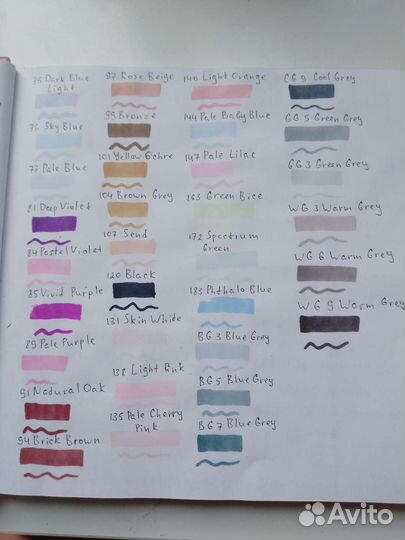 75 Dark Blue
Light
76 Sky Blue
77 Pale Blue
81 Deep Violet
84 Pastel Violet
85 Vivid Purple
89 Pale Purple
91 Natural Oak
94 Brick Brown
97 Rose Beige
99 Bronze
101 Yellow Ochre
104 Brown Grey
107 Sand
120 Black
131 Skin White
138 Light Pink
135 Pale Cherry
Pink
140 Light Orange
144 Pale Baby Blue
147 Pale Lilac
163 Green Bice
172 Spectrum
Green
183 Phthalo Blue
BG 3 Blue Grey
BG 5 Blue Grey
BG 7 Blue Grey
CG 9 Cool Grey
GG 5 Green Grey
GG 3 Green Grey
WG 3 Warm Grey
WG 6 Warm Grey
WG 9 Warm Grey
Avito